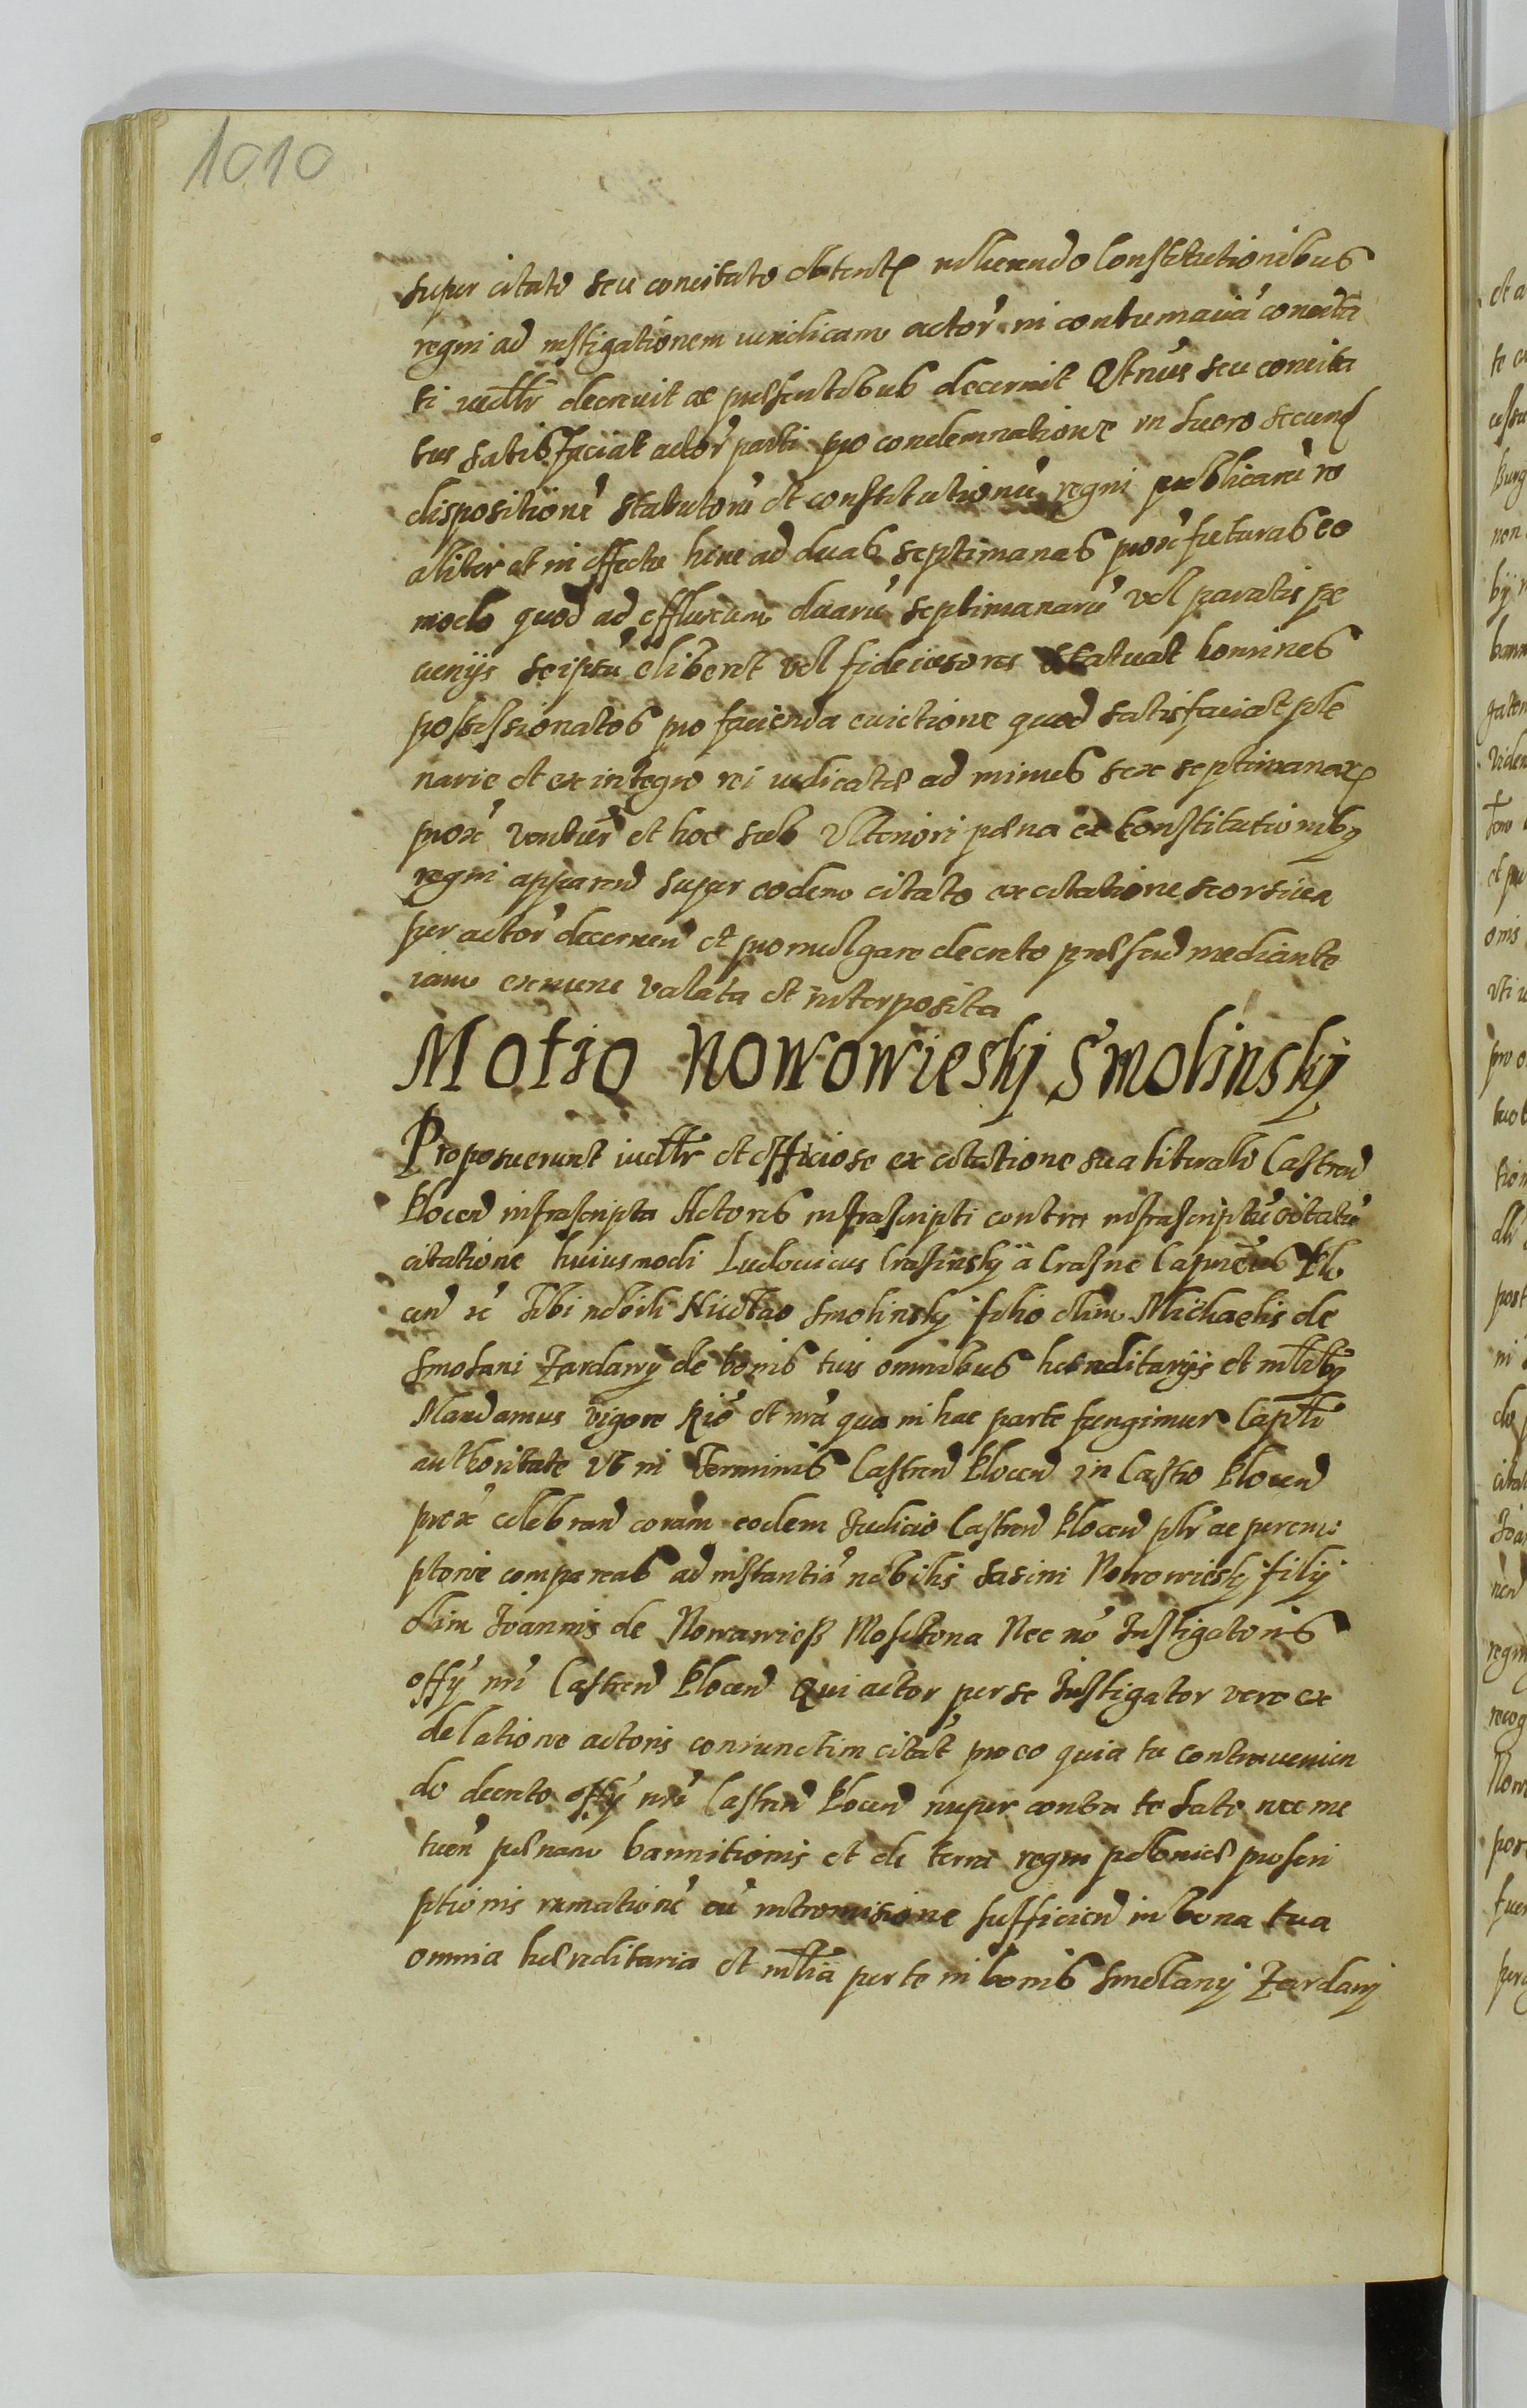 1010
super citato seu concitato obtent adherendo Constitutionibus
regni ad instigationem iuridicam actor in contumacia concita
ti iudlr decrevit ac presentibus decernit Qtnus seu concita
tus satisfaciat actor parti pro condemnatione in luoro secund
disposition statutoru et constitutionu regni publicaru re
aliter et in effectu hinc ad duas septimanas prox futuras eo
modo quod ad effluxum duaru septimanaru vel paratis pe
cunijs seipsu eliberet vel fideiussores statuat homines
possessionatos pro facienda evictione quod satisfaciat ple
narie et ex integro rei iudicatæ ad minus sex septimanar
prox ventur et hoc sub Ulteriori pæna ex Constitutionibq
regni apparen super eodem citato ex citatione seorsiua
per actor decernen et promulgare decreto presen mediante
iam exnunc valata et interposita
Motio Nowowieskj Smolinskj
Proposuerunt iudlr et officiose ex citatione sua literali Castren
Plocen infrascripta Actores infrascripti contra infrascriptu citatu
citatione huiusmodi Ludouicus Crasinskj a Crasne Capneus Plo
cen sc Tibi nobili Nicolao Smolinskj filio olim Michaelis de
Smolani Zardawy de bonis tuis omnibus hæreditarijs et mlibq
Mandamus vigore Rie et nra qua in hac parte fungimur Capli
authoritate Ut in Terminis Castren Plocen in Castro Plocen
prox celebran coram eodem Judicio Castren Plocen plr ac perem
ptorie compareas ad instantia nobilis Sasini Nowowieskj filij
olim Joannis de Nowawieß Nec no Instigatoris
offy nri Castren Plocen Qui actor per se Instigator vero ex
delatione actoris coniunctim citat pro eo quia tu contravenien
do decreto offy nri Castren Plocen nuper contra te lato nec me
tuen pænam bannitionis et de terra regni poloniæ proscri
ptionis cu intromisione sufficien in bona tua
omnia hæreditaria et mlia per te in bonis Smolany Zardawj